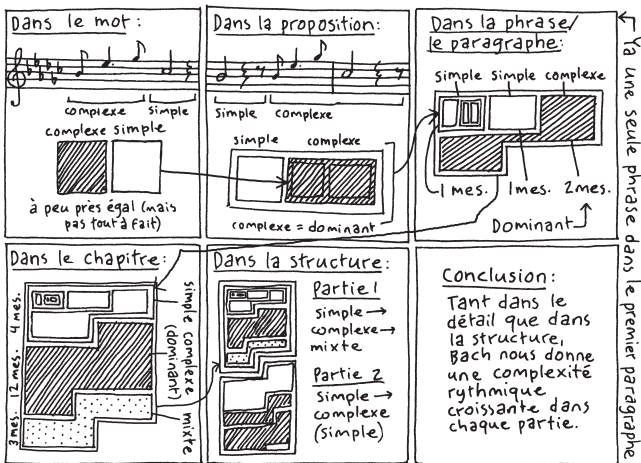 Dans le mot :
complexe simple
complexe simple
à peu près égal (mais
pas tout à fait)
Dans la proposition :
simple complexe
simple complexe
complexe = dominant
Dans la phrase/
le paragraphe :
simple simple complexe
1 mes. 1 mes. 2 mes.
Dominant
Ya une seule phrase dans le premier paragraphe
Dans le chapitre :
4 mes.
12 mes.
3 mes.
simple
complexe
(dominant)
mixte
Dans la structure :
Partie 1
simple →
complexe →
mixte
Partie 2
simple →
complexe
(simple)
Conclusion :
Tant dans le
détail que dans
la structure,
Bach nous donne
une complexité
rythmique
croissante dans
chaque partie.